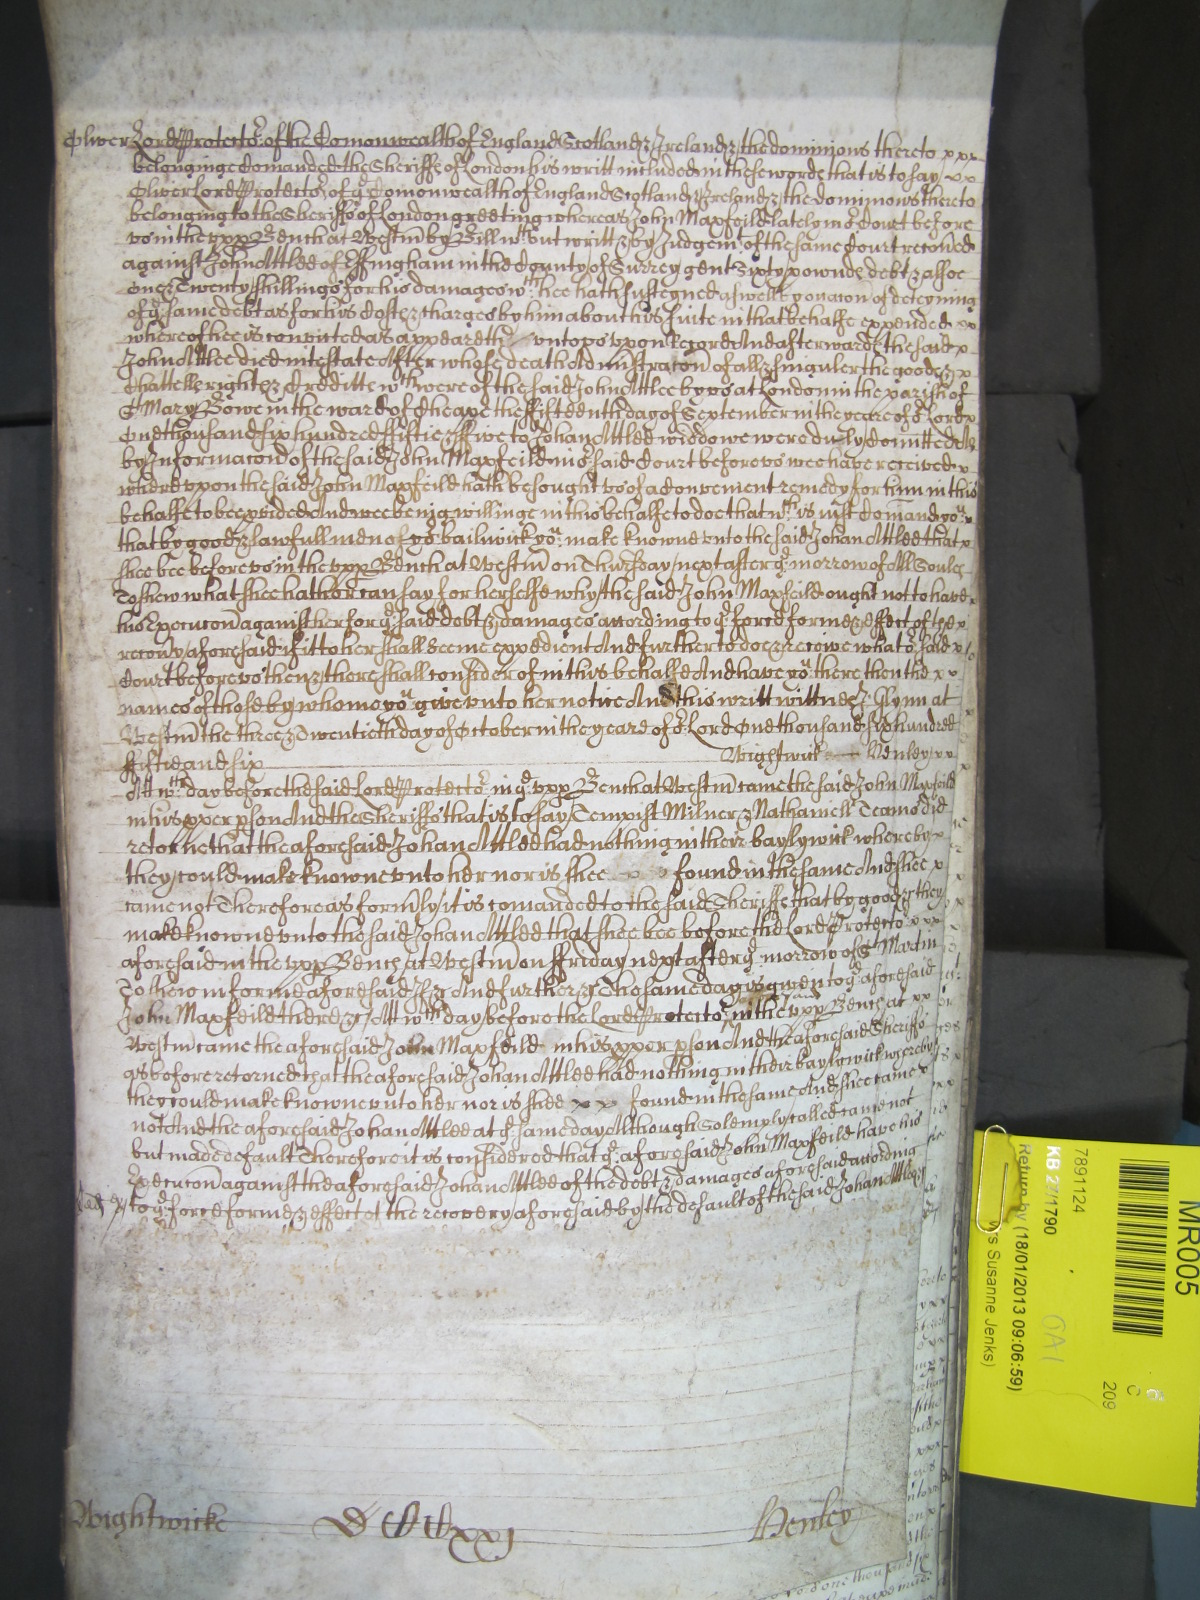 Oliver Lord Protector of the Comonwealth of England Scotland & Ireland & the dominions thereto xxx
belonginge Comanded the Sheriffe of London his writt included in these words that is to say xx
Oliver Lord Protector of ye Comonwealth of England Scotland & Ireland & the dominions thereto
belonging to the Sheriffs of London greeting whereas John Maxfeild lately in or Court before
us in the upp Bench at Westm by Bill wthout writt & by Judgemt of the same Court recoued
against John Attlee of Effingham in the County of Surrey gent Sixty pownds debt & alsoe
Twenty shillings for his damages wch hee hath susteyned aswell by occacon of deteyning
of ye same debt as for his Costs & charges by him about his suite in that behalfe expended xx
whereof hee is convicted as appeareth unto us upon record And afterwards the said x
John Attlee died intestate After whose death Administracon of all & singuler the goods & x
Chattells rights & Creditts wch were of the said John Attlee by us at London in the parish of
St Mary Bowe in the ward of Cheape the fifteenth day of September in the yeare of or Lord
One thousand six hundred fiftie & five to Johan Attlee widdowe were duly comitted As
by Informacon of the said John Maxfeild in or said Court before us wee have received x
whereupon the said John Maxfeild hath besought us of a convenient remedy for him in this
behalfe to bee pvided And wee being willinge in this behalfe to doe that wch is iust Comand you
that by good & lawfull men of yor bailiwick you make knowne unto the said Johan Attlee that x
shee bee before us in the upp Bench at Westm on Thursday next after ye morrow of All Soules
To shew what shee hath or can say for herselfe why the said John Maxfeild ought not to have
his Execucon against her for ye said debt & damages according to ye force forme & effect of the x
recouy aforesaid if it to her shall seeme expedient And further to doe & receive what or said x
Court before us then & there shall consider of in this behalfe And have you there then the xx
names of those by whome you give unto her notice And this writt wittnes Glynn at
Westm the three & twentieth day of October in the yeare of or Lord One thousand six hundred
fiftie and six Wightwick Henley xx
Att wch day before the said Lord Protector in ye upp Bench at Westm came the said John Maxfeild
in his pper pson And the Sheriffs that is to say Tempest Milner & Nathaniell Teams did
retorne that the aforesaid Johan Attlee had nothing in their baylywick whereby x
they could make knowne unto her nor is shee x x found in the same And shee x
came not Therefore as formly it is comanded to the said Sheriffs that by good & they
make knowne unto the said Johan Attlee that shee bee before the Lord Protector xxx
aforesaid in the upp Bench at Westm on ffriday next after ye morrow of St Martin
To shew in forme aforesaid & And further & The same day is given to ye aforesaid
John Maxfeild there & Att wch day before the Lord Protector in the said upp Bench at xx
Westm came the aforesaid John Maxfeild in his pper pson And the aforesaid Sheriffs
as before retorned that the aforesaid Johan Attlee had nothing in their baylywick whereby
they could make knowne unto her nor is shee xx found in the same And shee came x
not And the aforesaid Johan Attlee at ye same day Although solemply called came not
but made default Therefore it is considered that ye aforesaid John Maxfeild have his
Execucon against the aforesaid Johan Attlee of the debt & damages aforesaid according
to ye force forme & effect of the recovery aforesaid by the default of the said Johan Attlee
Wightwicke Henley
MR005
7891124
KB 27/1790
Return by (18/01/2013 09:06:59)
Susanne Jenks)
209
C